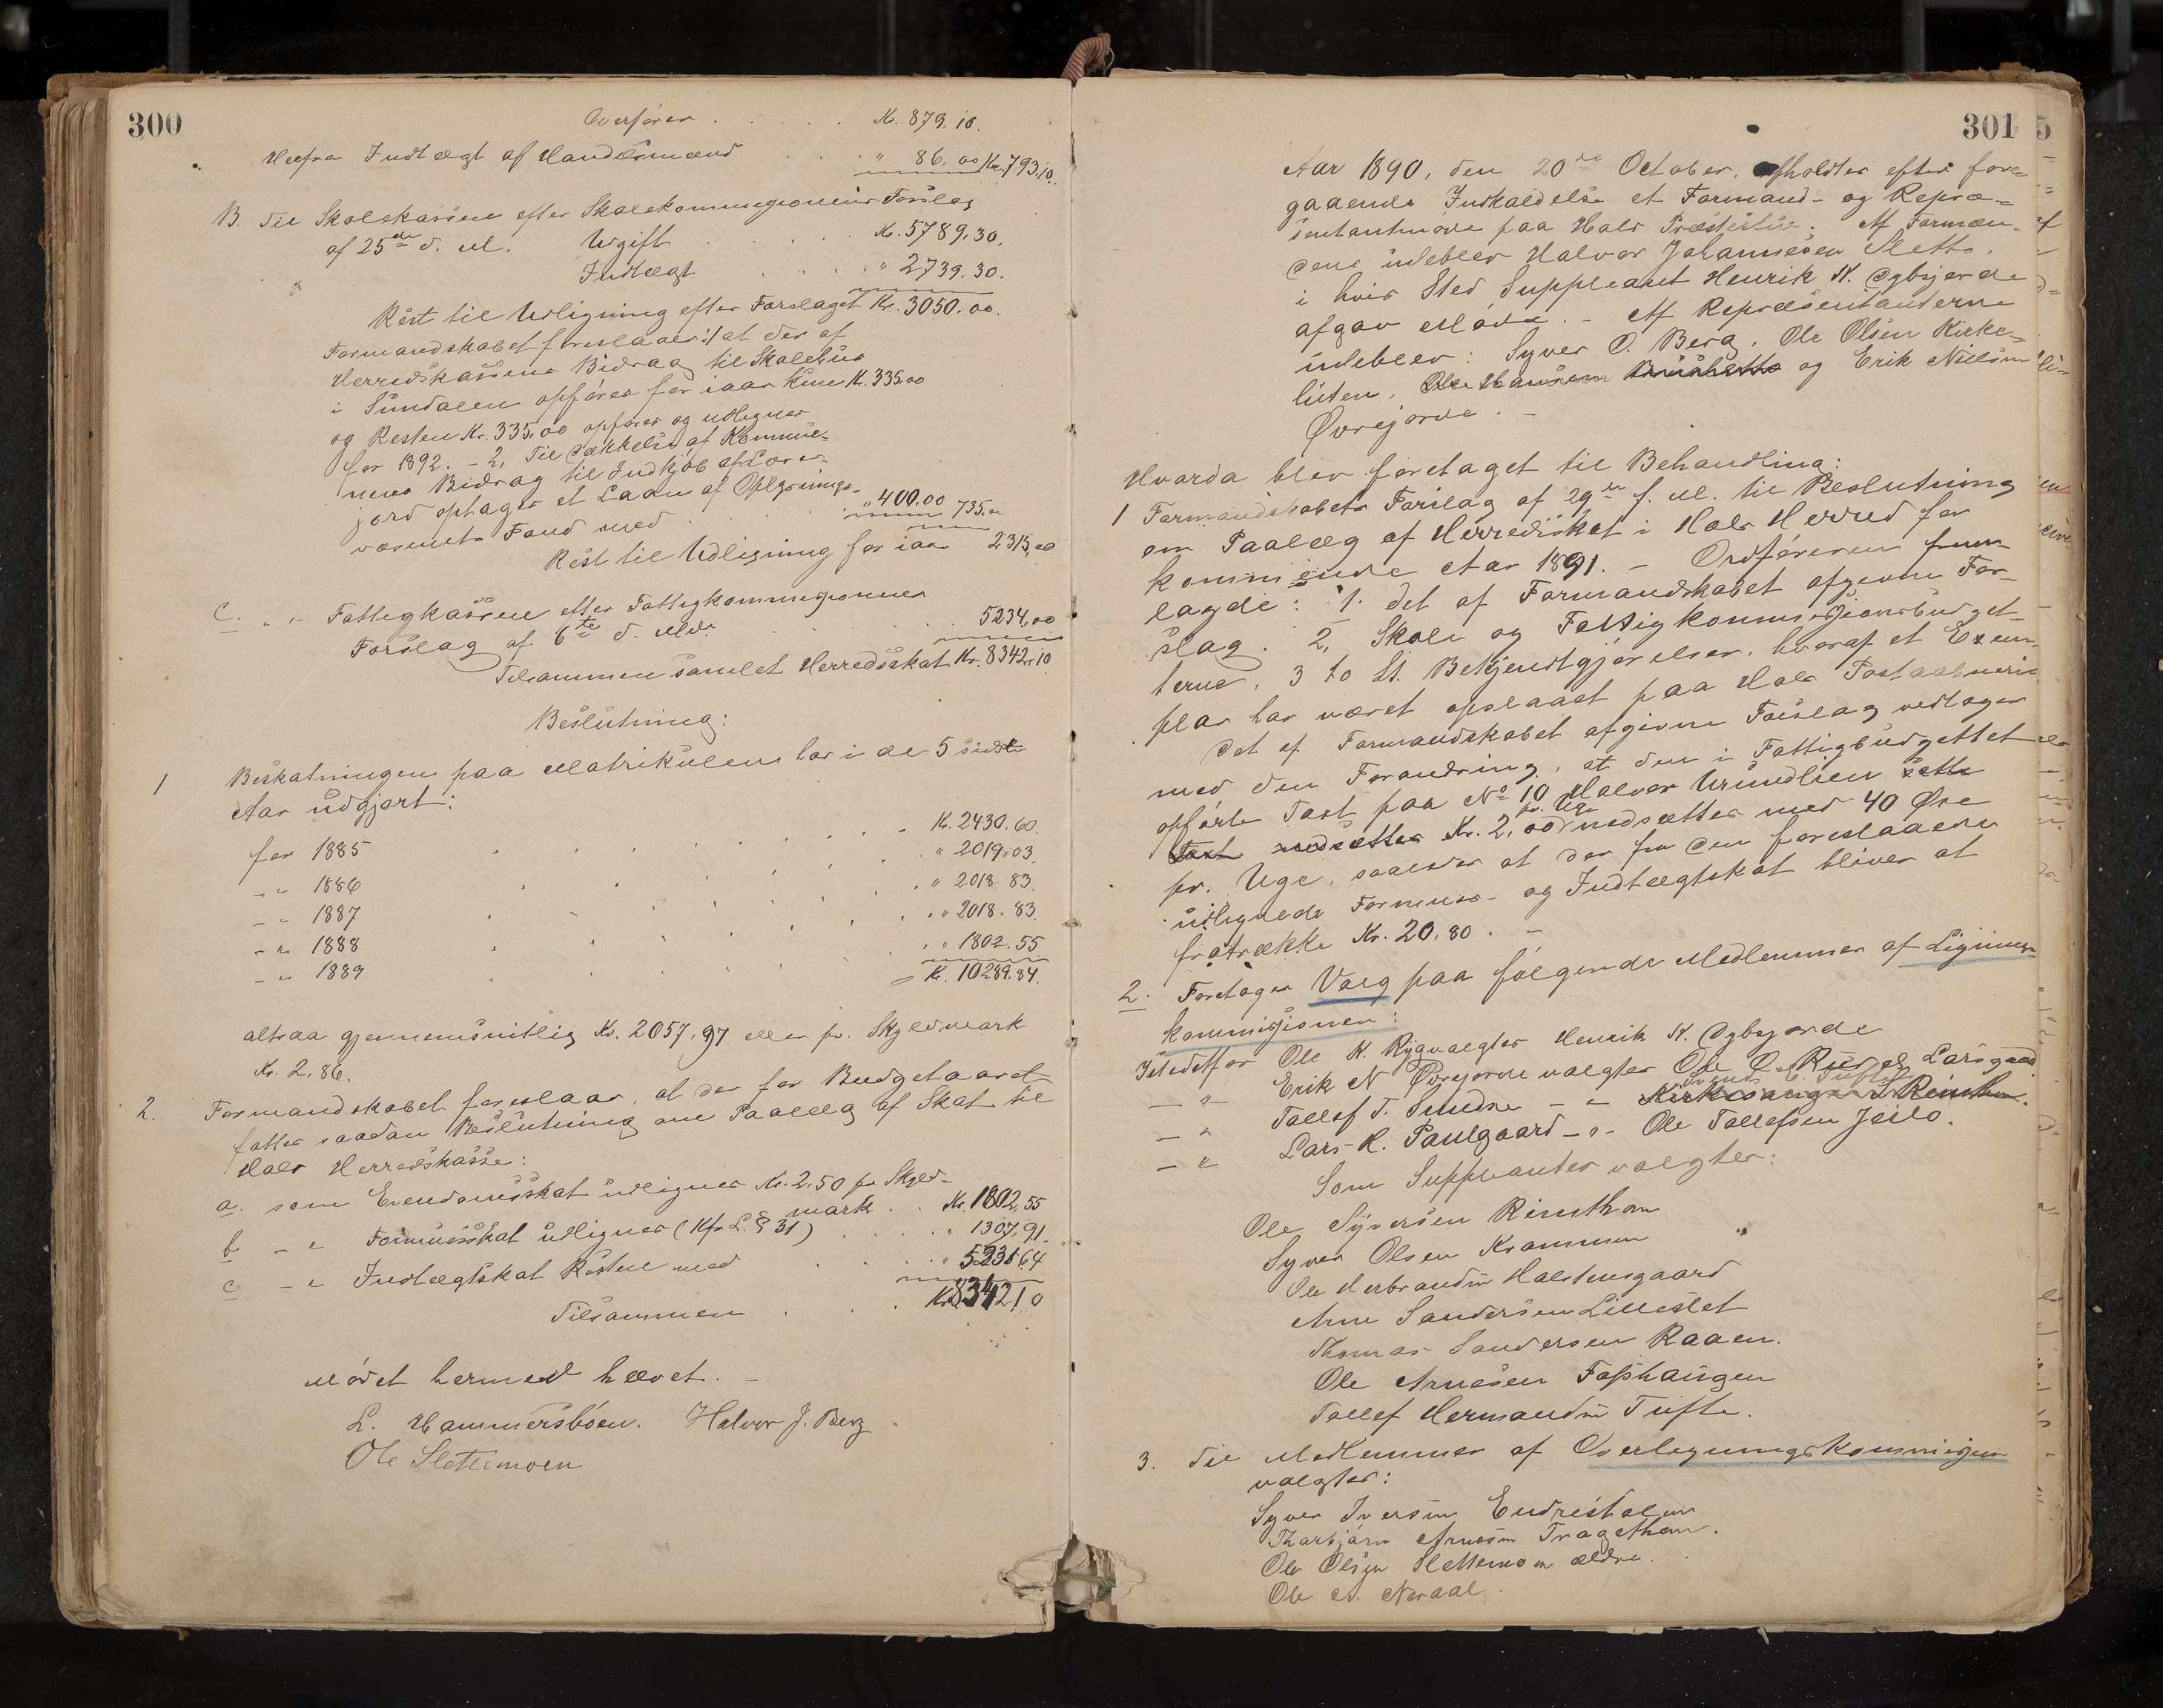 300
Overføres . . . . . Kr. 879.10.
Herfra Indtægt af Handelsmænd . . . " 86.00 Kr. 793.10.
B. Til Skolekassen efter Skolekommissionens Forslag
af 25de d. M. Udgift . . . . Kr. 5789,30.
Indtægt . . . . " 2739.30.
Rest til Udligning efter Forslaget Kr. 3050.00.
Formandskabet foreslaar: 1/ at der af
Herredskassens Bidrag til Skolehus
i Sundalen opføres for iaar kun Kr. 335.00
og Resten Kr. 335,00 opføres og udlignes
for 1892. - 2, Til Dækkelse af Kommu-
nens Bidrag til Indkjøb af Lærer-
jord optages et Laan af Oplysnings-
væsenets Fond med . . . " 400.00 735.00
Rest til Udligning for iaar 2315,00
C. " - Fattigkassen efter Fattigkommissionens
Forslag af 6te d. Md. . . . . 5234,00
Tilsammen samlet Herredsskat Kr. 8342.10
Beslutning:
1 Beskatningen paa Matrikulen har i de 5 sidste
Aar udgjort:
for 1885 . . . . . Kr. 2430.60.
- " 1886 . . . . . " 2019.03.
- " 1887 . . . . . " 2018.83.
- " 1888 . . . . . " 2018.83.
- " 1889 . . . . . " 1802.55
= Kr. 10289.84.
altsaa gjennemsnitlig Kr. 2057.97 eller pr. Skyldmark
Kr. 2.86.
2. Formandskabet foreslaar, at der for Budgetaaret
fattes saadan Beslutning om Paalæg af Skat til
Hols Herredskasse:
a. som Eiendomsskat udlignes Kr. 2.50 pr Skyld-
mark . . Kr. 1802,55
b - " Formuesskat udlignes (Kfr L. § 31) . . . " 1307,91.
c - " Indtægtskat Resten med . . . " 5231.64
Tilsammen . . . Kr. 8342.10
Mødet hermed hævet. -
L. Hammersbøen. Halvor J. Berg
Ole Slettemoen
301
Aar 1890, den 20de October, afholdtes efter fore-
gaaende Indkaldelse et Formand- og Repræ-
sentantmøde paa Hols Præstestue. Af Formæn-
dene udeblev Halvor Johannesen Sletto.
i hvis Sted Suppleant Henrik K. Dybsjorde
afgav Møde. - Af Repræsentanterne
udeblev: Syver O. Berg, Ole Olsen Kirke-
luten, Ole Hansen og Erik Nielsen
Øvrejorde. -
Hvorda blev foretaget til Behandling:
1 Formandskabets Forslag af 29de f. M. til Beslutning
om Paalæg af Herredsskat i Hols Herred for
kommende Aar 1891. - Ordføreren frem-
lagde: 1. det af Formandskabet afgivne For-
slag. 2, Skole og Fattigkommissionsbudget-
terne, 3 to St. Bekjendtgjørelser, hvoraf et Exem-
plar har været opslaaet paa Hols Postaabneri
Det af Formandskabet afgivne Forslag vedtages
med den Forandring, at den i Fattigbudgettet
opførte Post paa No 10 Halvor Urundlien sette
Post nedsættes Kr. 2,00 pr. Uge nedsættes med 40 Øre
pr. Uge, saaledes at der fra den foreslaaede
udlignede Formues- og Indtægtskat bliver at
fratrække Kr. 20.80. -
2. Foretages Valg paa følgende Medlemmer af Lignings-
kommissionen:
Istedetfor Ole K. Rygg valgtes Henrik K. Dybsjorde
- " - Erik N Øvrejorde valgtes Ole O. Rud el Larsgaard
- " Tollef T. Sundre - " -
- " Lars H. Paulgaard - " - Ole Tollefsen Jeilo.
Som Suppleanter valgtes:
Ole Syversen Rimthun
Syver Olsen Krammen
Ole Herbrandsn Holstensgaard
Arne Sandersen Lilleslet
Thomas Sandersen Raaen.
Ole Arnesen Fosshaugen
Tollef Hermandsn Tufte.
3. Til Medlemmer af Overligningskommissjonen
valgtes:
Syver Iversen Endrestølen
Thorbjørn Arnesn Tragethon.
Ole Olsen Slettemoen ældre.
Ole A. Neraal.